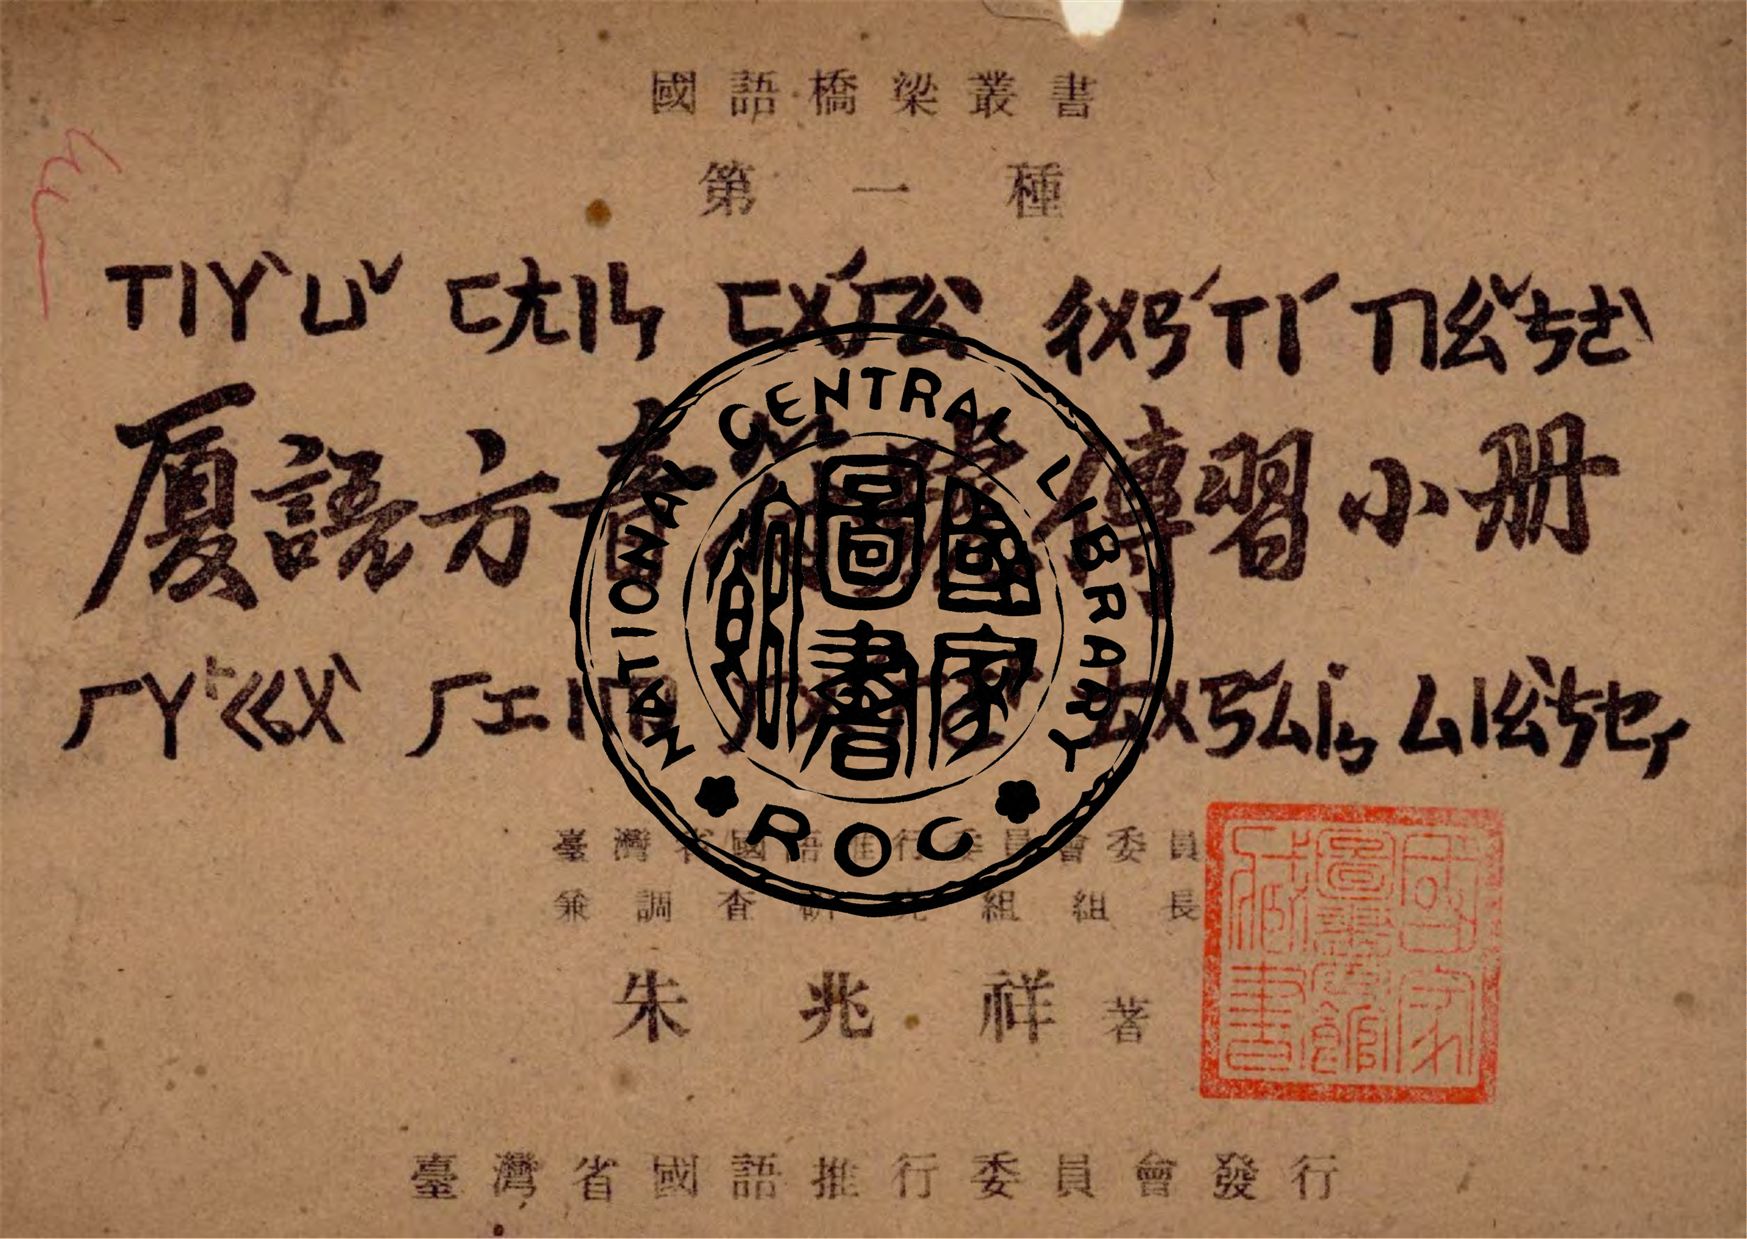 國語橋梁叢書
第一種
ㄒㄧㄚˋㄩˇ ㄈㄤㄧㄣ ㄈㄨˊㄏㄠ ㄔㄨㄢˊㄒㄧˊ ㄒㄧㄠˇㄘㄜˋ
厦語方音符號傳習小册
ㄏㄚ˫ㆣㄨˋ ㄏㆲㄧㆬ ㄙㄧㄠˋ
NATIONAL CENTRAL LIBRARY
國家圖書館
ROC
臺灣省國語推行委員會委員
兼調查研究組組長
朱兆祥著
國家圖書館藏書
臺灣省國語推行委員會發行